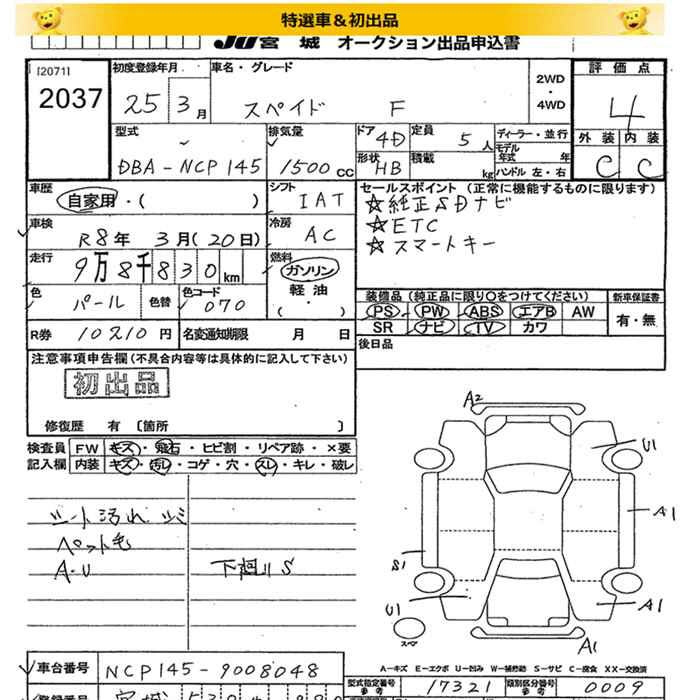 特選車＆初出品
JU宮城 オークション出品申込書
[2071]
2037
初度登録年月
25年 3月
車名・グレード
スペイド F
2WD
・
4WD
評価点
4
外装 内装
C C
型式
DBA-NCP145
排気量
1500CC
ドア 4D
定員 5人
形状 HB
積載 kg
ディーラー・並行
モデル年式 年
ハンドル 左・右
車歴
自家用・( )
シフト
IAT
車検
R8年 3月(20日)
冷房
AC
セールスポイント (正常に機能するものに限ります)
☆純正SDナビ
☆ETC
☆スマートキー
走行
9万8千830km
燃料
ガソリン
軽油
・( )
色
パール
色替
色コード
070
装備品 (純正品に限り○をつけてください)
PS PW ABS エアB AW
SR ナビ TV カワ
新車保証書
有・無
R券 10210円
名変通知期限 月 日
後日品
注意事項申告欄(不具合内容等は具体的に記入して下さい)
初出品
修復歴 有 〔箇所 〕
検査員記入欄
FW キズ・飛石・ヒビ割・リペア跡・×要
内装 キズ・汚れ・コゲ・穴・スレ・キレ・破レ
シート汚れ シミ
ペット毛
A・U
下廻りS
A2
U1
A1
S1
U1
A1
A1
スペア
A-キズ E-エクボ U-凹み W-補修跡 S-サビ C-腐食 XX-交換済
車台番号 NCP145-9008048
型式指定番号 参考 17321
類別区分番号 参考 0009
登録番号 宮城